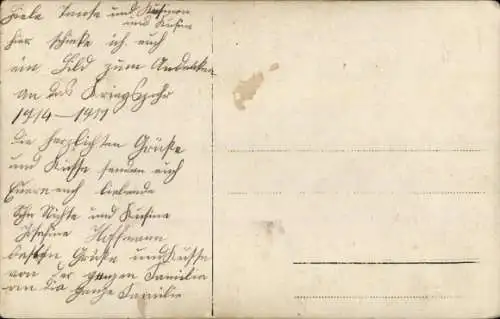 Liebe Tante und Kusinen
und Kusin
hier schicke ich euch
ein Bild zum Andenken
an das Kriegsjahr
1914–1917
die herzlichsten Grüße
und Küsse senden euch
Euere euch liebende
Nichte und Kusine
Josefine Hoffmann
besten Grüße und Küsse
von der ganzen Familie
an die ganze Familie